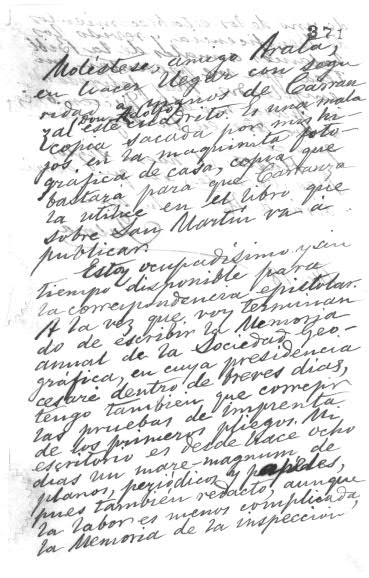 371
Moléstese, amigo Arata,
en hacer llegar con segu
ridad a manos de Carran
don Adolfo
zal este cuadrito. Es una mala
copia sacada por mis hi-
jos, en la maquinita foto-
gráfica de casa, copia que
bastará para que Carranza
la utilice en el libro que
sobre San Martín va á
publicar.
Estoy ocupadísimo y sin
tiempo disponible para
la correspondencia epistolar.
A la vez que voy terminan
do de escribir la Memoria
anual de la Sociedad Geo-
gráfica, en cuya presidencia
cesaré dentro de breves días,
tengo también que correjir
las pruebas de imprenta
de los primeros pliegos. Mi
escritorio es desde hace ocho
días un mare-magnum de
planos, periódicos y papeles,
pues también redacto, aunque
la labor es menos complicada,
la Memoria de la inspección,